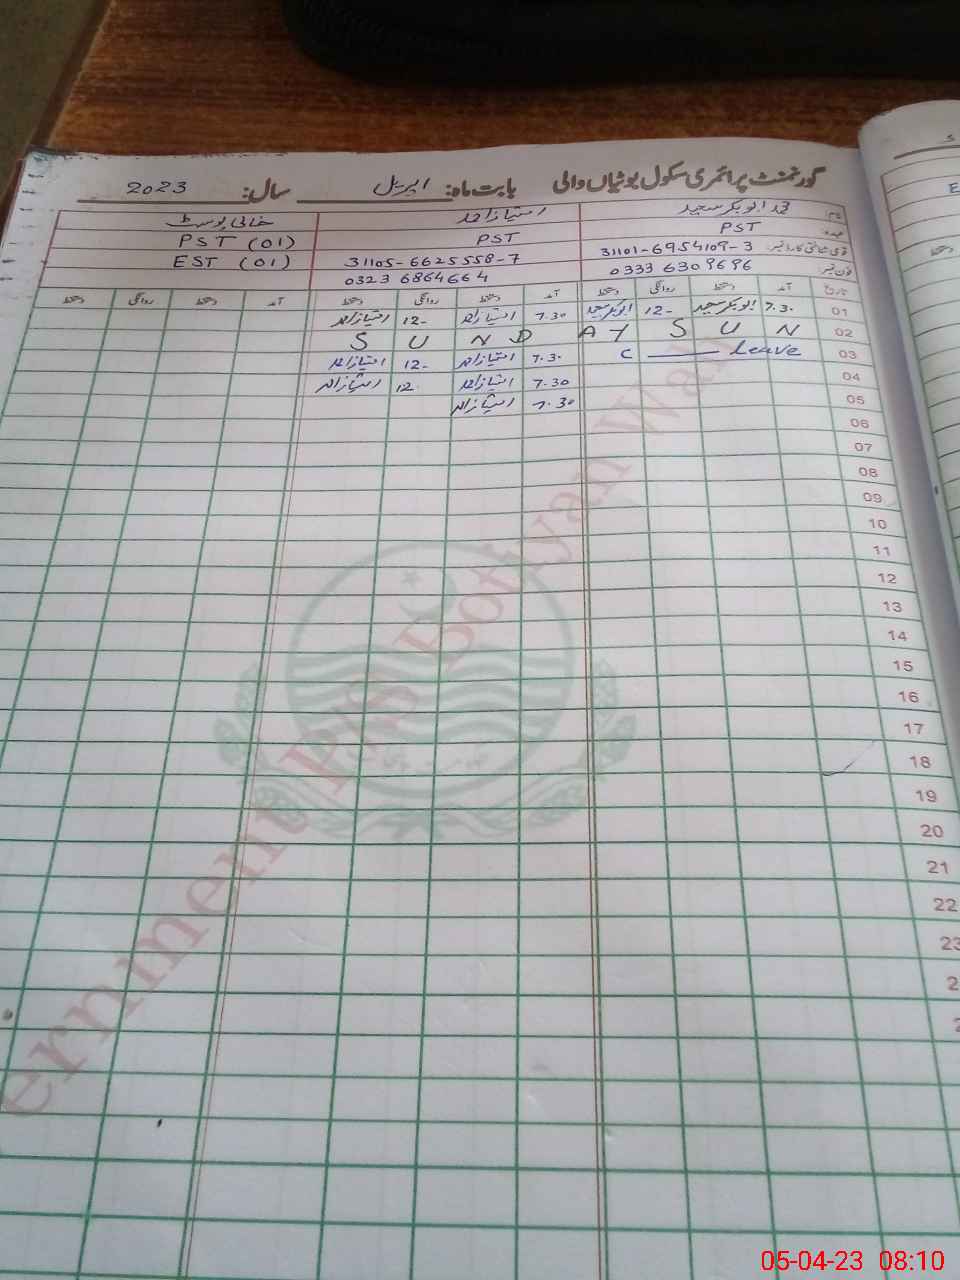 گورنمنٹ پرائمری سکول بوٹیاں والی بابت ماہ: اپریل سال: 2023
نام: محمد ابوبکر سعید امتیاز احمد خالی پوسٹ
عہدہ: PST PST PST (01)
قومی شناختی کارڈ نمبر: 31101-6954109-3 31105-6625558-7 EST (01)
فون نمبر: 0333 6309696 0323 6864664
تاریخ آمد دستخط روانگی دستخط آمد دستخط روانگی دستخط آمد دستخط روانگی دستخط
01 7.30 ابوبکر سعید 12- ابوبکر سعید 7.30 امتیاز احمد 12- امتیاز احمد
02 S U N D A Y S U N
03 C —— Leave 7.30 امتیاز احمد 12- امتیاز احمد
04 7.30 امتیاز احمد 12- امتیاز احمد
05 7.30 امتیاز احمد
06
07
08
09
10
11
12
13
14
15
16
17
18
19
20
21
22
23
ernment P/S Botiyan Wal
05-04-23 08:10